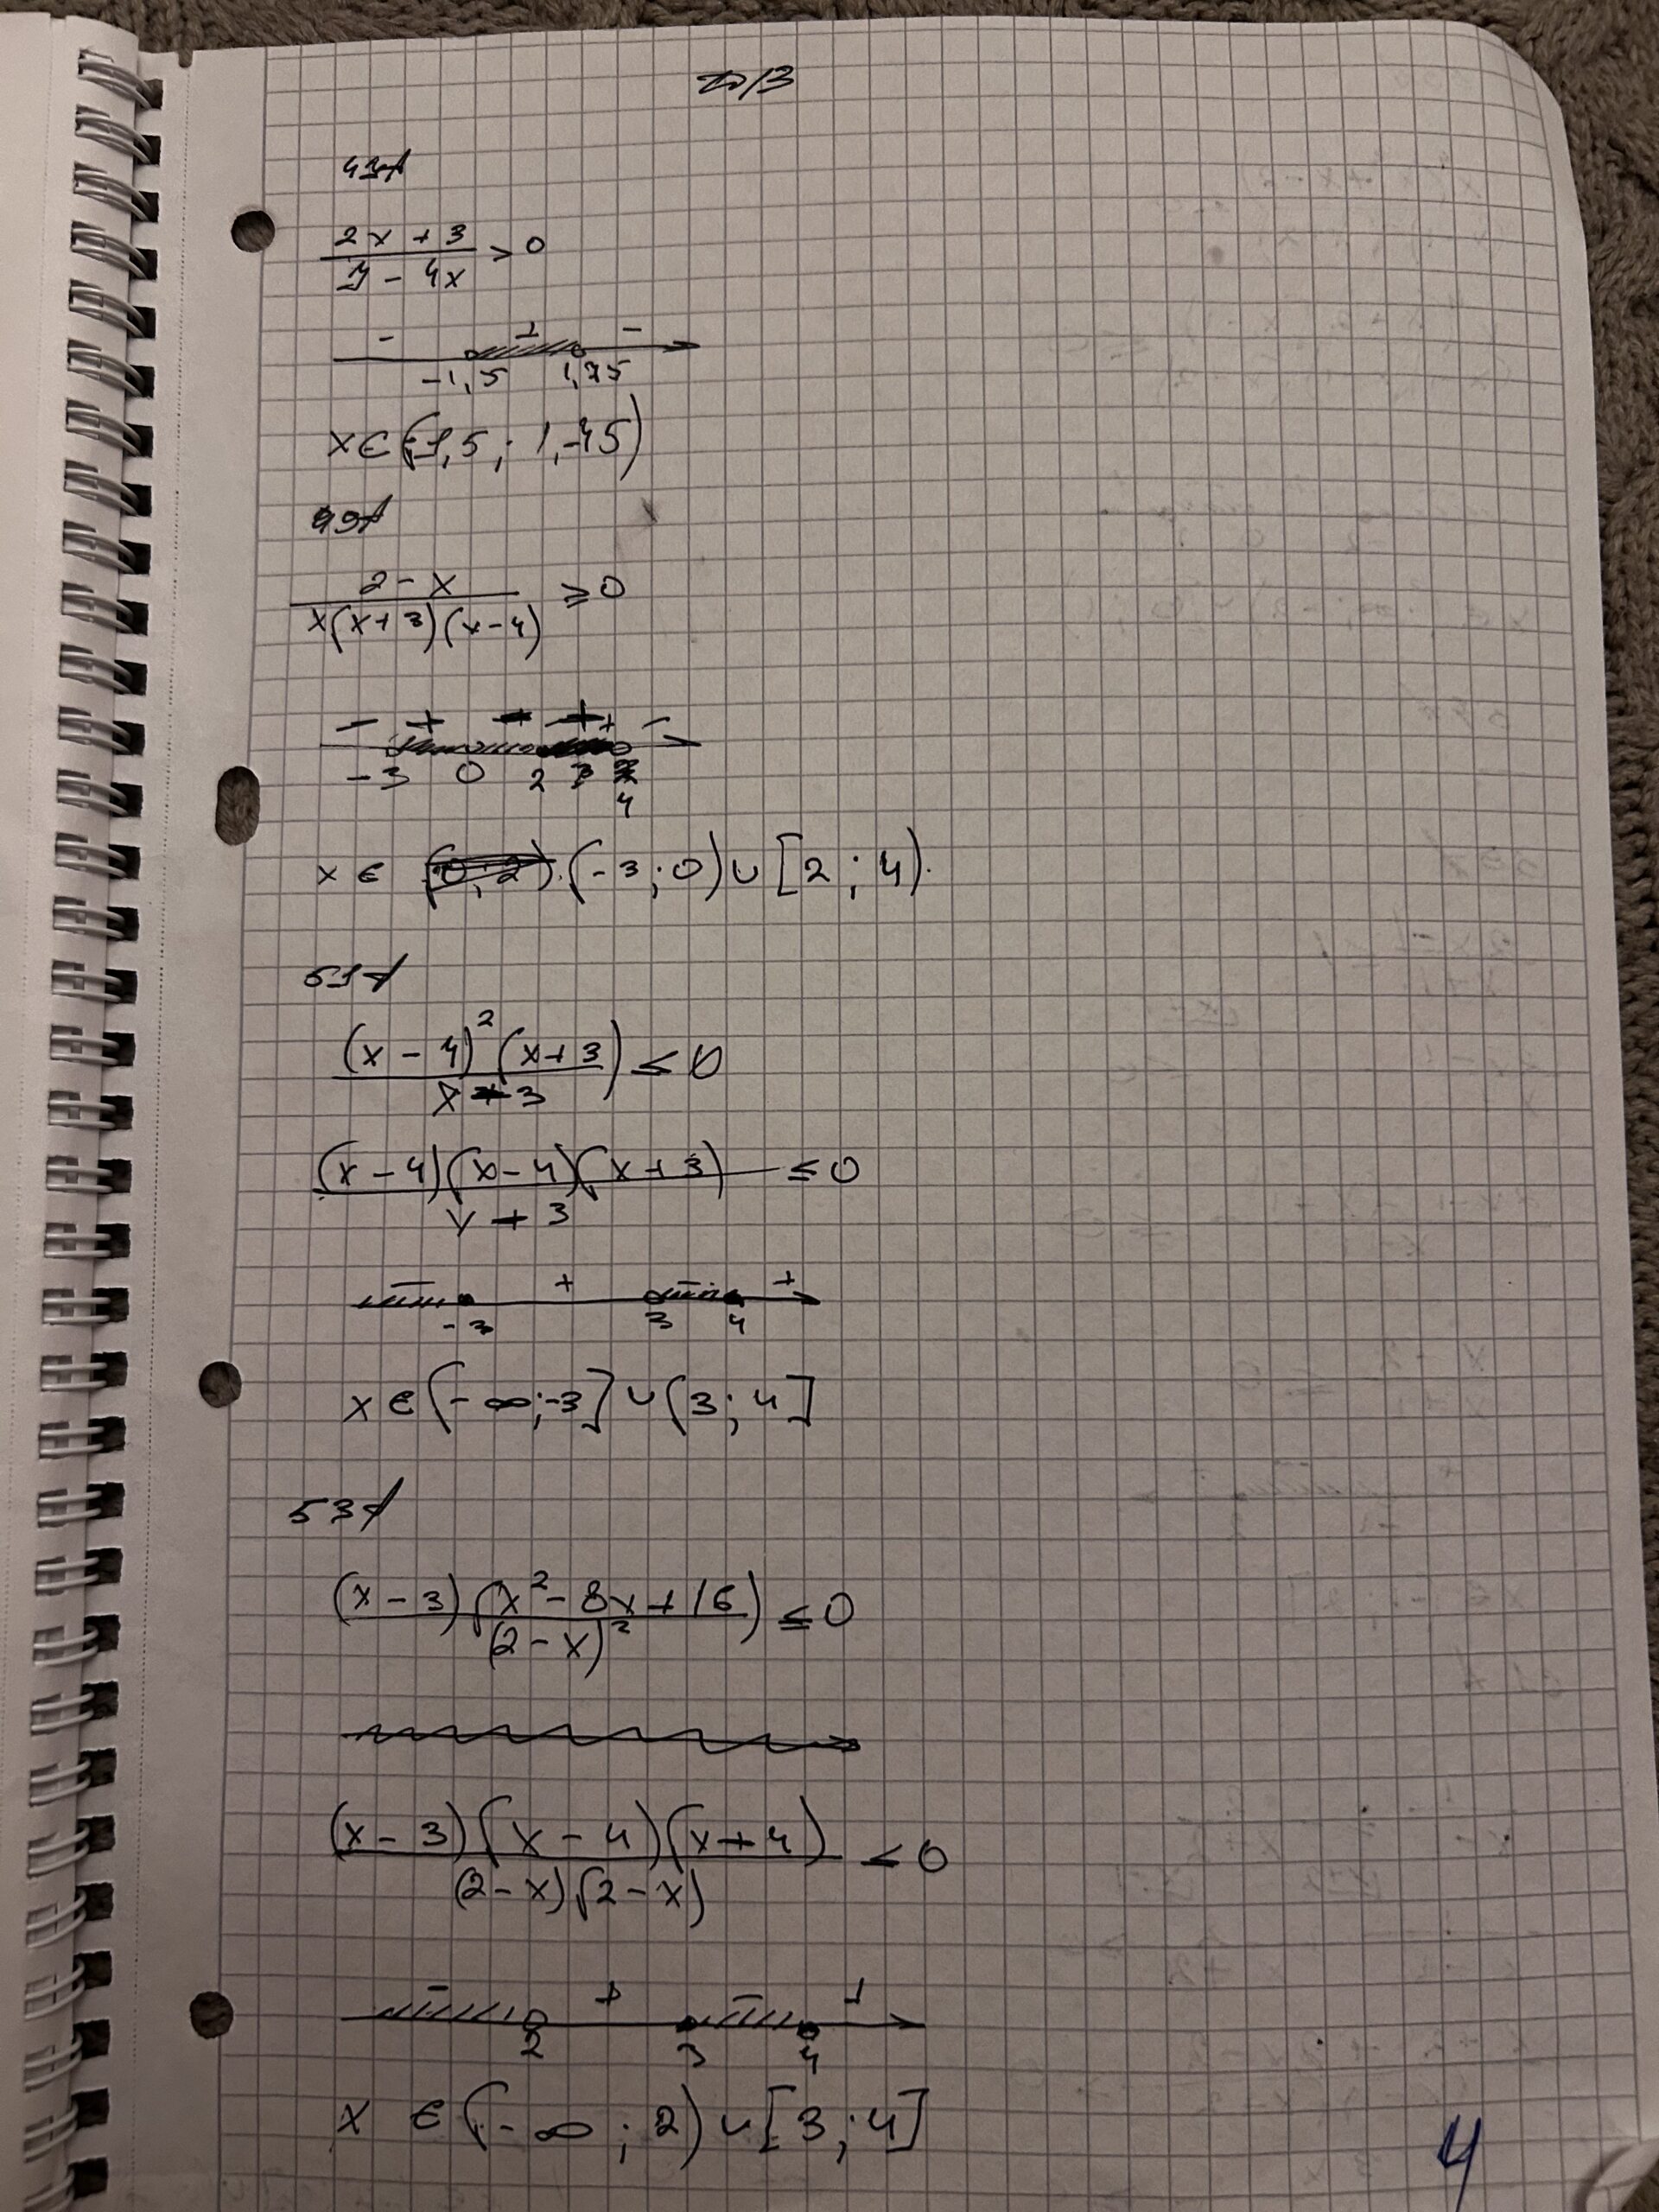 Д/З
47А
(2x + 3)/(7 - 4x) > 0
- + -
-1,5 1,75
x ∈ (-1,5 ; 1,75)
49А
(2 - x)/(x(x+3)(x-4)) ≥ 0
- + - + + -
-3 0 2 3
4
x ∈ (0; 2) (-3; 0) ∪ [2 ; 4).
51А
((x - 4)²(x+3))/(x - 3) ≤ 0
((x - 4)(x - 4)(x + 3))/(x + 3) ≤ 0
- + - +
-3 3 4
x ∈ (-∞; -3] ∪ (3; 4]
53А
((x - 3)(x² - 8x + 16))/((2 - x)²) ≤ 0
((x - 3)(x - 4)(x + 4))/((2 - x)(2 - x)) ≤ 0
- + - +
2 3 4
x ∈ (-∞ ; 2) ∪ [3 ; 4]
4